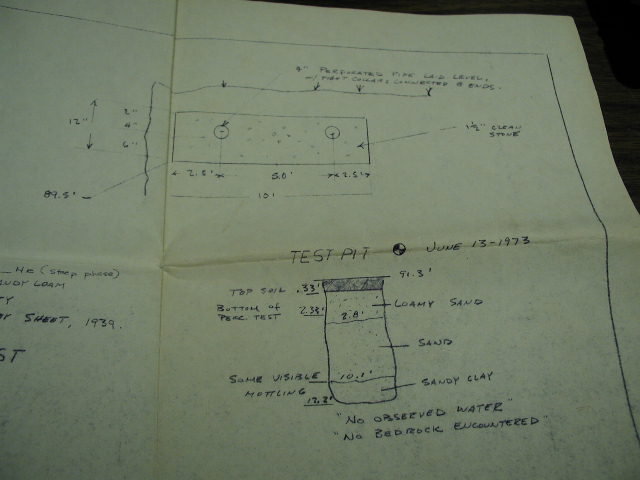 4" PERFORATED PIPE LAID LEVEL,
W/ TIGHT COLLARS CONNECTED @ ENDS.
12"
2"
4"
6"
1½" CLEAN
STONE
2.5'
5.0'
2.5'
10'
89.5'
TEST PIT
JUNE 13-1973
91.3'
TOP SOIL .33'
BOTTOM OF
PERC. TEST
2.33'
LOAMY SAND
2.8'
SAND
SOME VISIBLE
MOTTLING
10.1'
SANDY CLAY
12.2'
"NO OBSERVED WATER"
"NO BEDROCK ENCOUNTERED"
(steep phase)
LOAM
SHEET, 1939.
ST